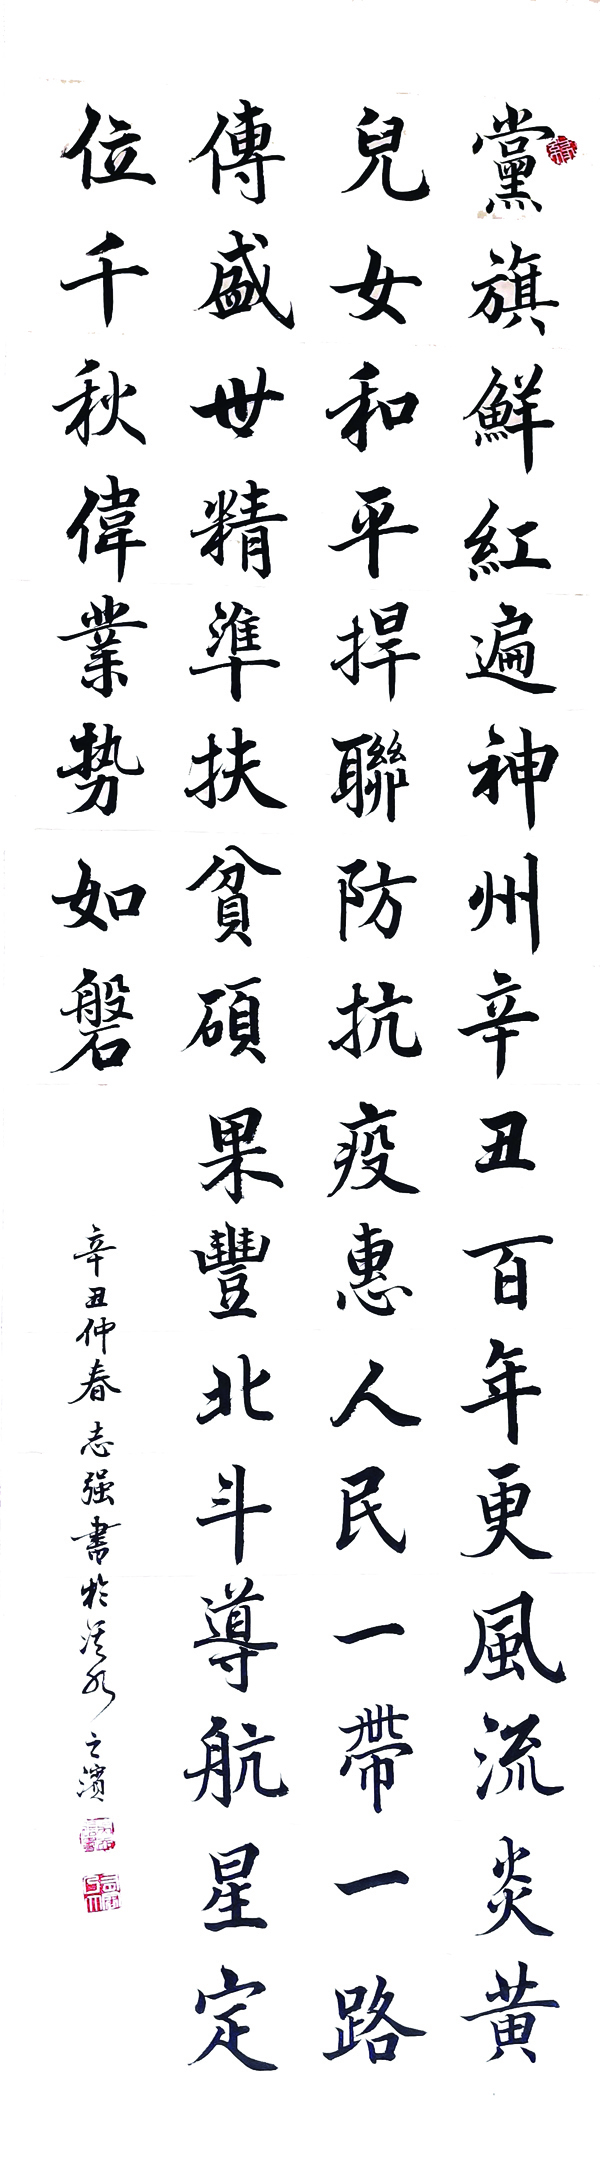 黨旗鮮紅遍神州辛丑百年更風流炎黃
兒女和平捍聯防抗疫惠人民一帶一路
傳盛世精準扶貧碩果豐北斗導航星定
位千秋偉業勢如磐
辛丑仲春志强書於淇水之濱